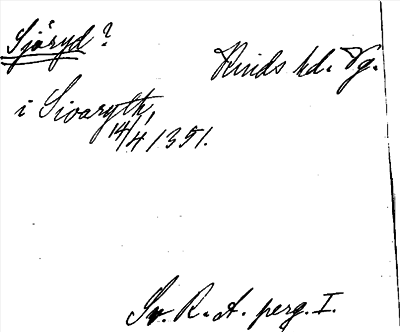 Sjöryd? Kinds hd. Vg.
i Sioaryth,
14/4 1351.
Sv. R. A. perg. I.